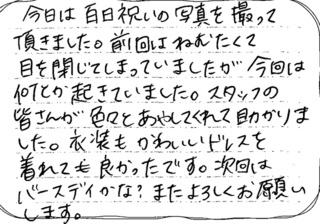 今日は百日祝いの写真を撮って
頂きました。前回はねむたくて
目を閉じてしまっていましたが今回は
何とか起きていました。スタッフの
皆さんが色々とあやしてくれて助かりま
した。衣装もかわいいドレスを
着れても良かったです。次回は
バースデイかな?またよろしくお願い
します。